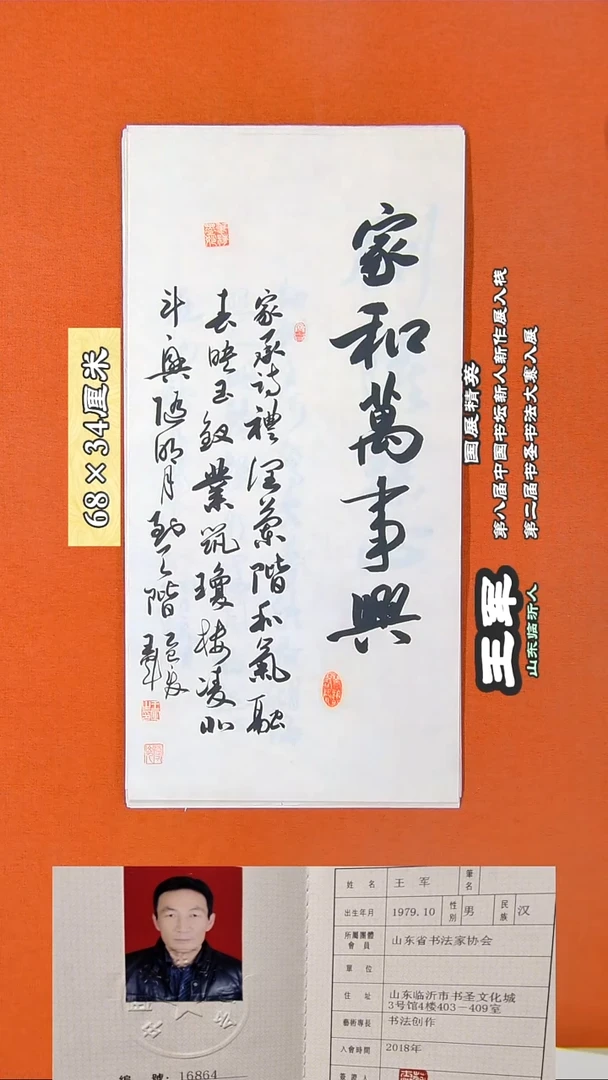 家和萬事興
家承詩禮潤蘭階和氣融
春映玉釵業筑瓊樓凌北
斗興隨明月到天階
68×34厘米
国展精英
第八届中国书坛新人新作展入栈
第二届书圣书法大赛入展
王军
山东临沂人
姓 名 王 军 筆名
出生年月 1979.10 性別 男 民族 汉
所屬團體會員 山东省书法家协会
單 位
住 址 山东临沂市书圣文化城3号馆4楼403—409室
藝術專長 书法创作
入會時間 2018年
簽證人
編 號: 16864